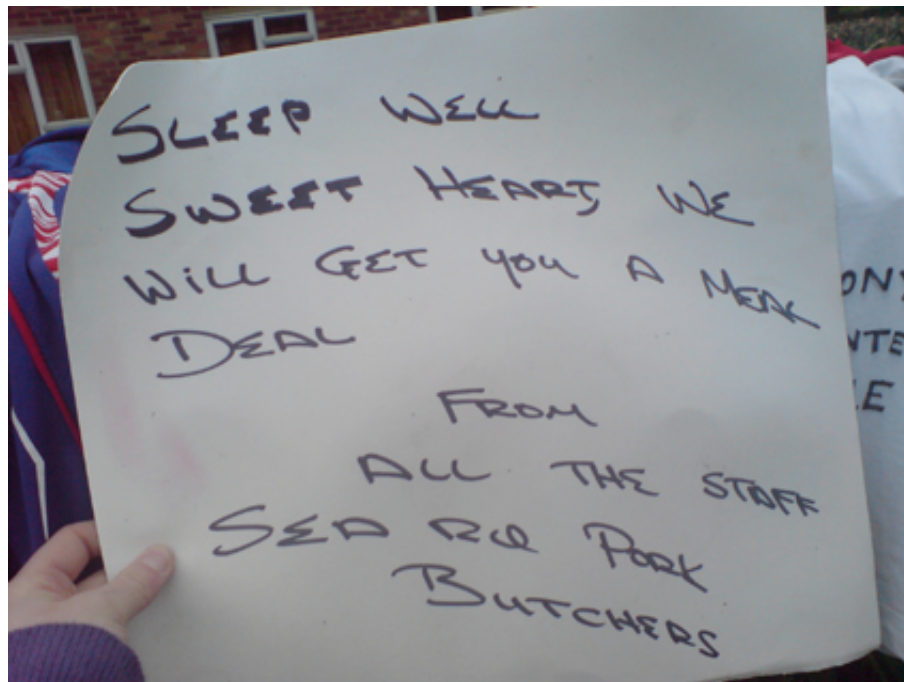 SLEEP WELL
SWEET HEART, WE
WiLL GET YOU A MEAL
DEAL
FROM
ALL THE STAFF
SEA RD PORK
BUTCHERS